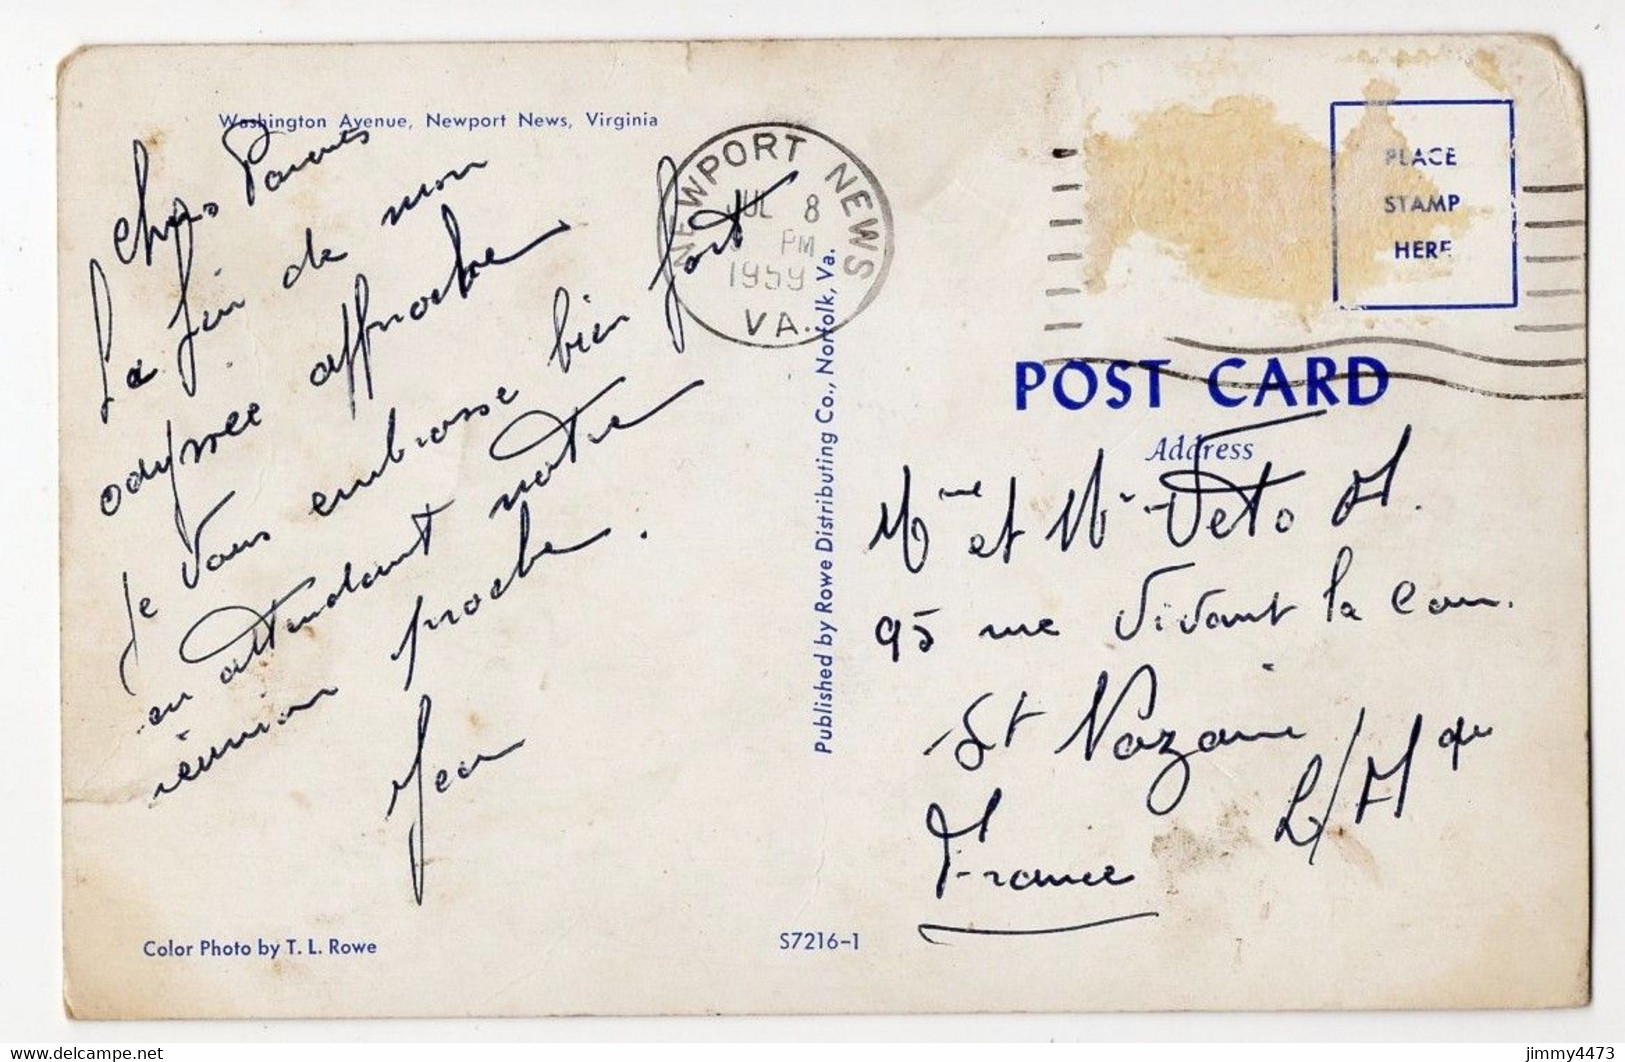 Washington Avenue, Newport News, Virginia
Chers Parents
La fin de mon
odyssée approche
Je vous embrasse bien fort
en attendant notre
réunion proche.
Jean
Color Photo by T. L. Rowe
S7216-1
Published by Rowe Distributing Co., Norfolk, Va.
NEWPORT NEWS
JUL 8
PM
1959
VA.
PLACE
STAMP
HERE
POST CARD
Address
Mme et Mr Veto A.
95 rue Vivant la Cou.
St Nazaire
L/Atque
France
delcampe.net
jimmy4473